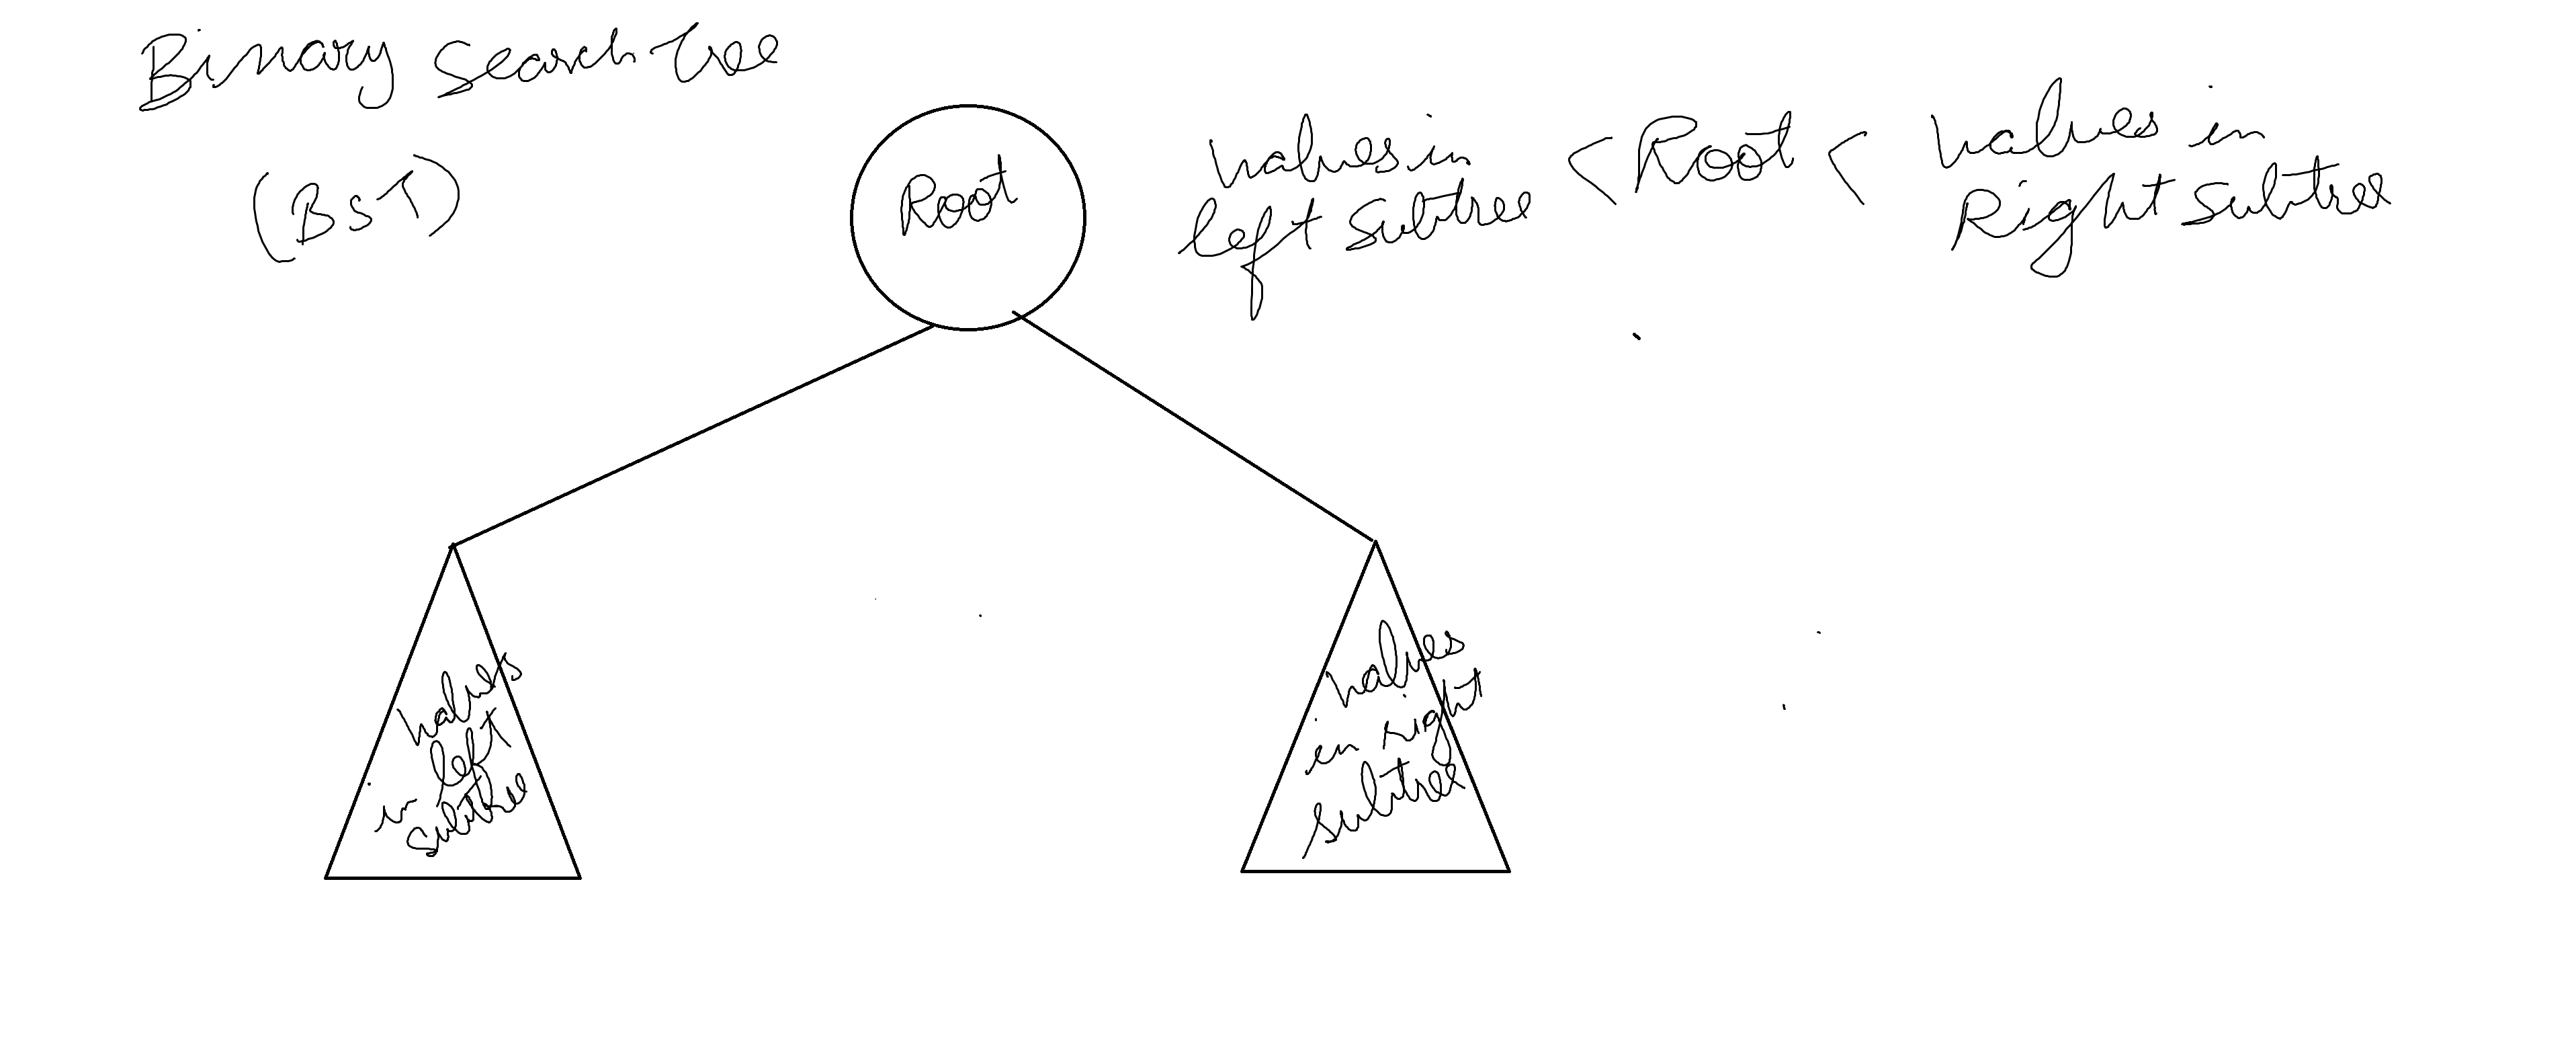 Binary Search Tree
(BST)
Root
values in left subtree < Root < values in Right subtree
values
in left
subtree
values
in right
subtree